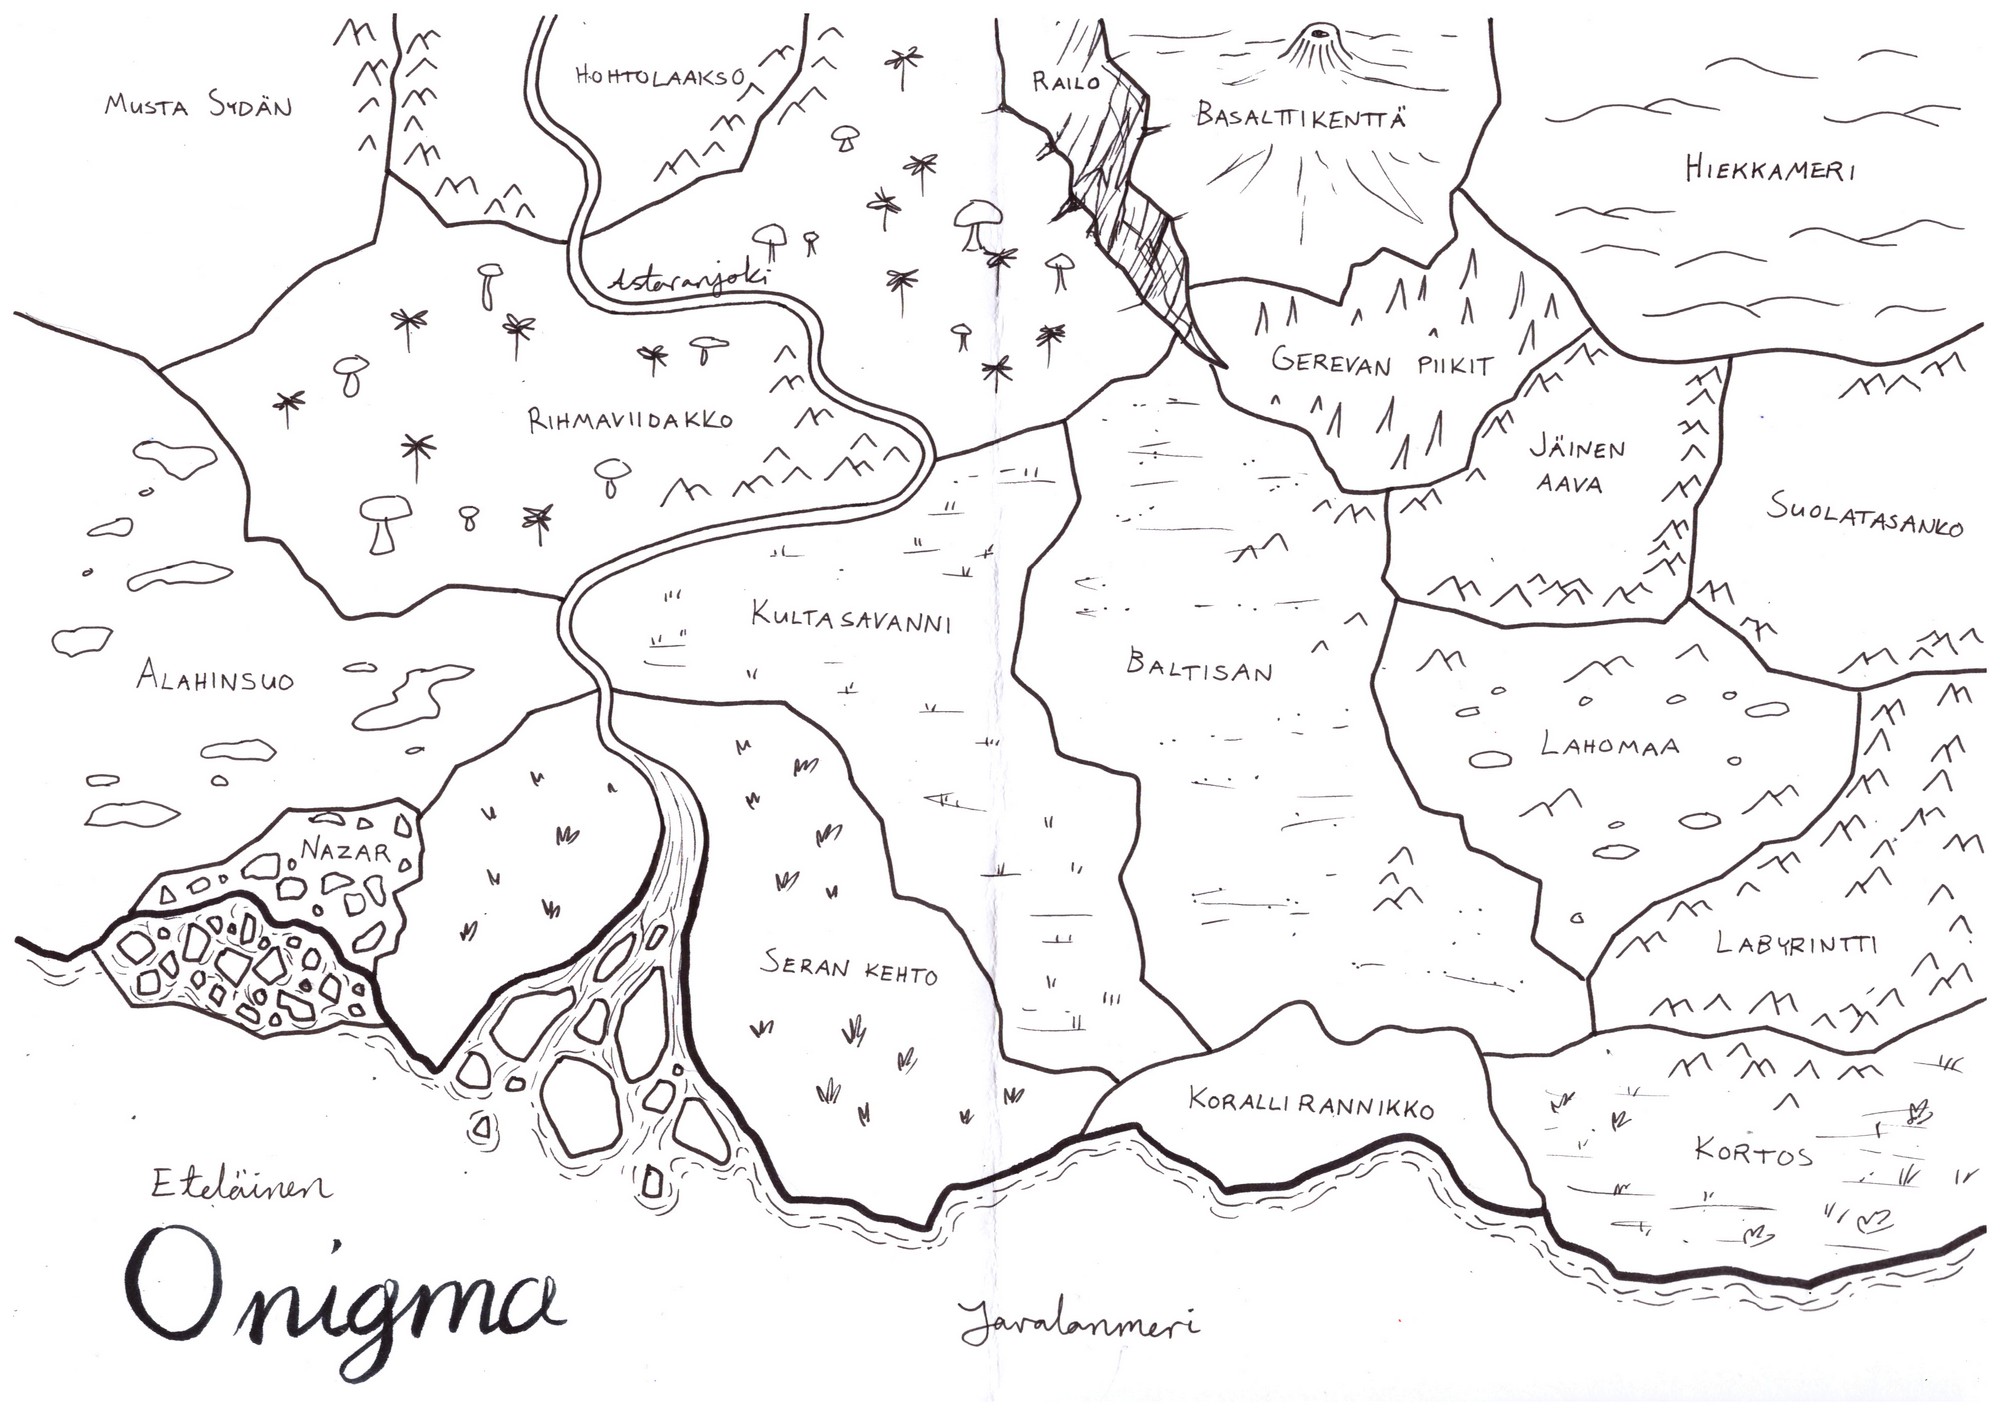 MUSTA SYDÄN
HOHTOLAAKSO
RAILO
BASALTTIKENTTÄ
HIEKKAMERI
Astaranjoki
GEREVAN PIIKIT
RIHMAVIIDAKKO
JÄINEN
AAVA
SUOLATASANKO
KULTASAVANNI
BALTISAN
ALAHINSUO
LAHOMAA
NAZAR
LABYRINTTI
SERAN KEHTO
KORALLIRANNIKKO
KORTOS
Eteläinen
Onigma
Javalanmeri